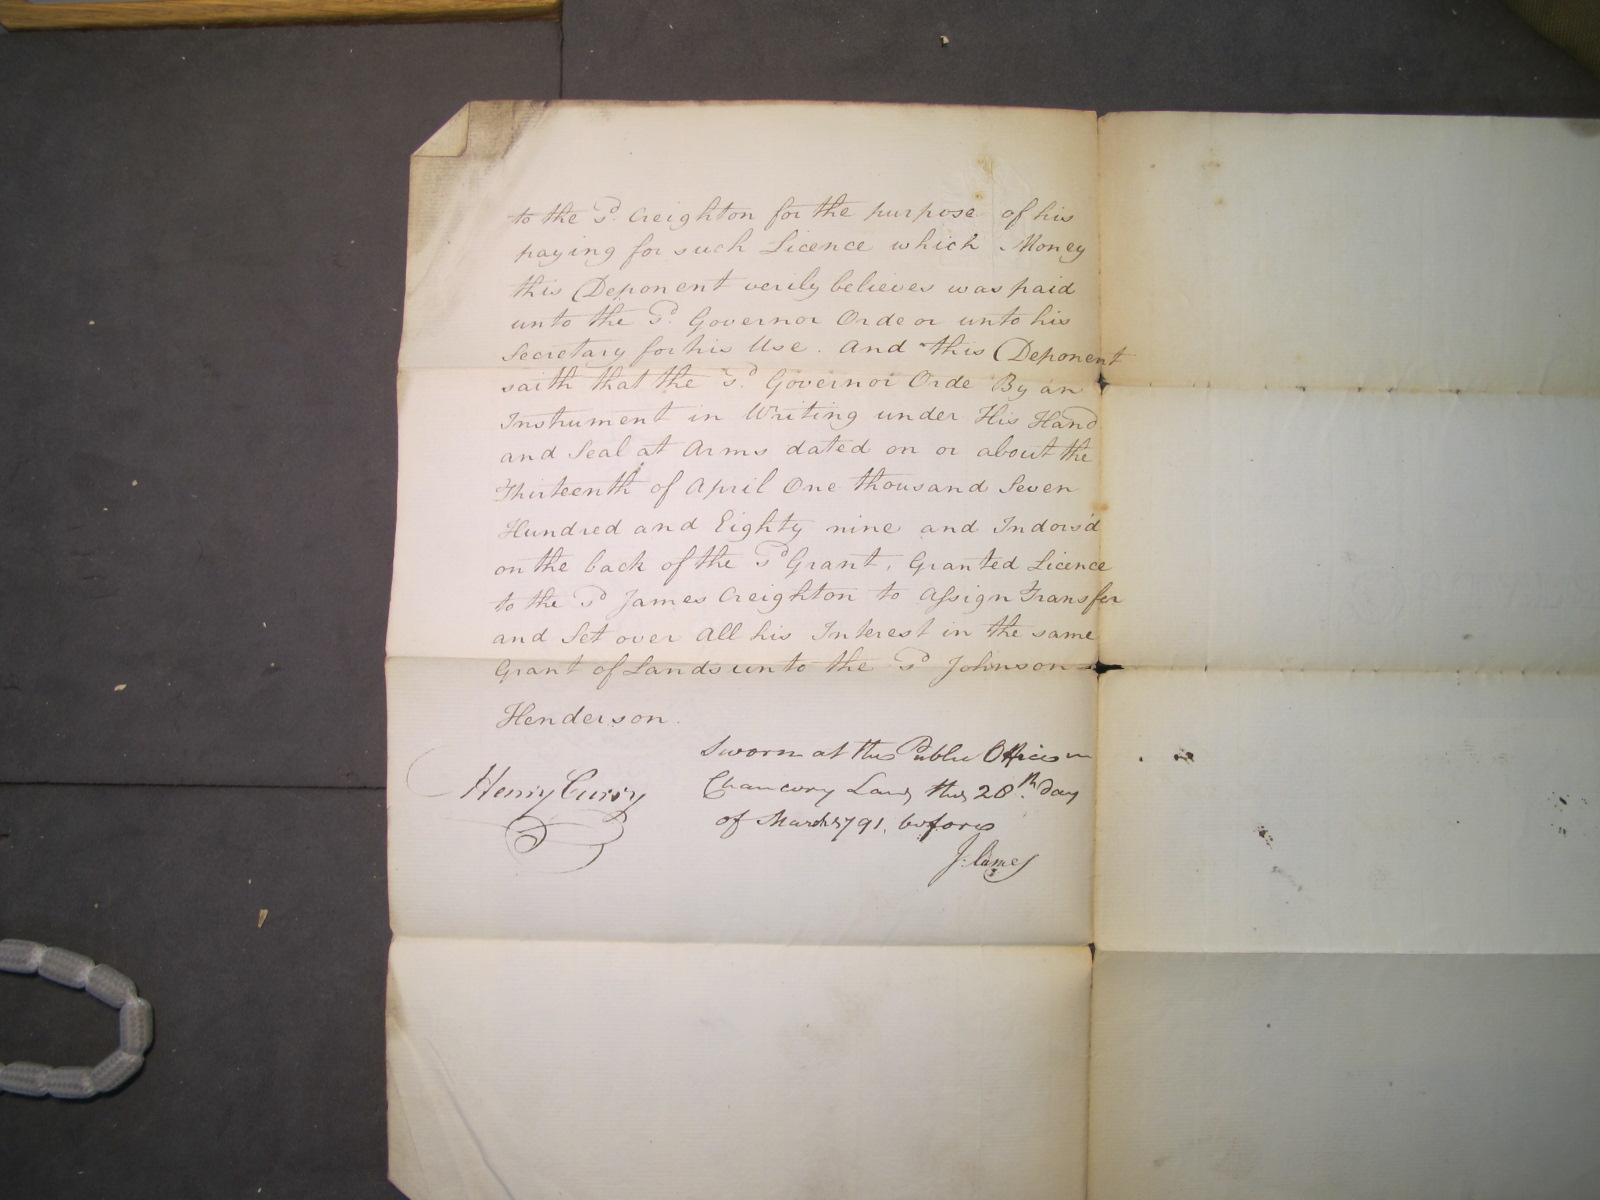 to the Sd. Creighton for the purpose of his
paying for such Licence which Money
this Deponent verily believes was paid
unto the Sd. Governor Orde or unto his
Secretary for his Use. And this Deponent
saith that the Sd. Governor Orde By an
Instrument in Writing under His Hand
and Seal at Arms dated on or about the
Thirteenth of April One thousand Seven
Hundred and Eighty nine and Indors'd
on the back of the Sd Grant, Granted Licence
to the Sd James Creighton to Assign Transfer
and Set over All his Interest in the same
Grant of Lands unto the Sd Johnson
Henderson.
Sworn at the Public Office in
Chancery Lane this 28th. day
of March 1791, before
Henry Curry
J: Eames